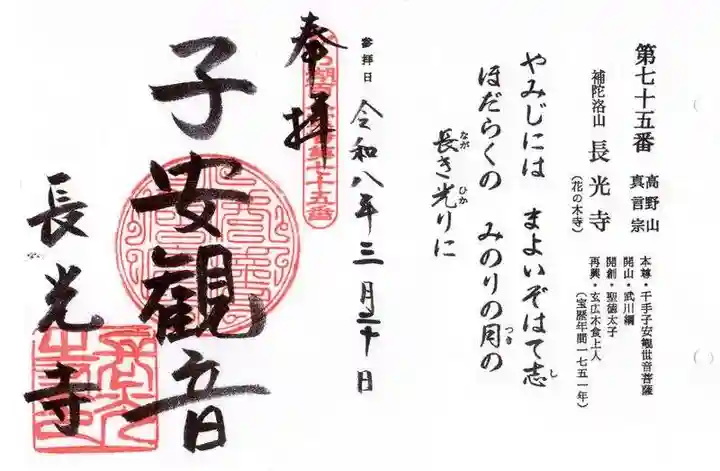 第七十五番 高野山真言宗
補陀洛山 長光寺
(花の木寺)
本尊・千手子安観世音菩薩
開山・武川綱
開創・聖徳太子
再興・玄広木食上人
(宝歴年間一七五一年)
やみじには まよいぞはて志
ほだらくの みのりの月の
長き光りに
し
つき
なが ひか
参拝日 令和八年三月二十日
奉拝
番第七十五番
子安観音
長光寺